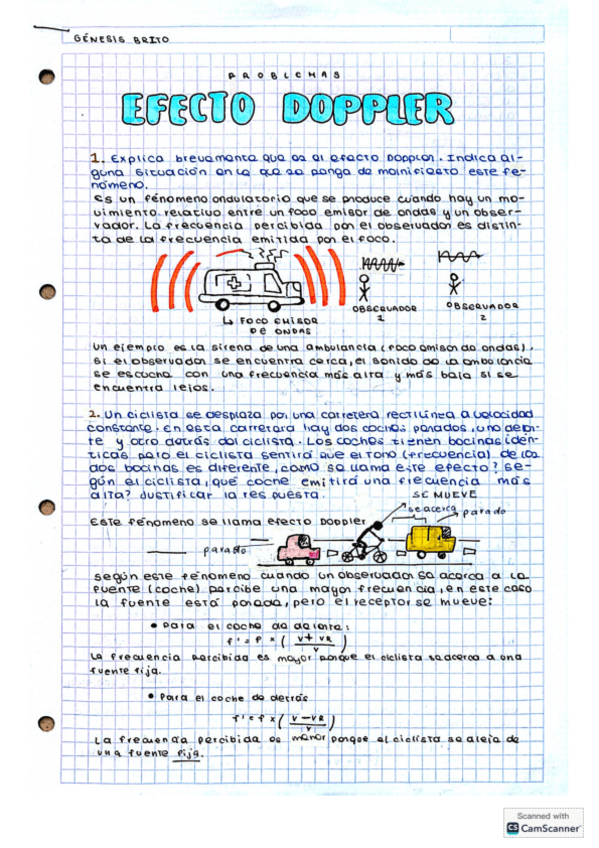 GÉNESIS BRITO
PROBLEMAS
EFECTO DOPPLER
1. Explica brevemente que es el efecto Doppler. Indica al-
guna situación en la que se ponga de manifiesto este fe-
nómeno.
Es un fenómeno ondulatorio que se produce cuando hay un mo-
vimiento relativo entre un foco emisor de ondas y un obser-
vador. La frecuencia percibida por el observador es distin-
ta de la frecuencia emitida por el foco.
OBSERVADOR
1
OBSERVADOR
2
↳ FOCO EMISOR
DE ONDAS
Un ejemplo es la sirena de una ambulancia (foco emisor de ondas).
Si el observador se encuentra cerca, el sonido de la ambulancia
se escucha con una frecuencia más alta y más baja si se
encuentra lejos.
2. Un ciclista se desplaza por una carretera rectilínea a velocidad
constante. En esta carretera hay dos coches parados, uno delan-
te y otro detrás del ciclista. Los coches tienen bocinas idén-
ticas pero el ciclista sentirá que el tono (frecuencia) de las
dos bocinas es diferente, ¿como se llama este efecto? Se-
gún el ciclista, que coche emitirá una frecuencia más
alta? Justificar la respuesta.
SE MUEVE
se acerca
parado
Este fenómeno se llama efecto Doppler
parado
según este fenómeno cuando un observador se acerca a la
fuente (coche) percibe una mayor frecuencia, en este caso
la fuente está parada, pero el receptor se mueve:
• Para el coche de delante:
f' = f × (v + vR / v)
La frecuencia percibida es mayor porque el ciclista se acerca a una
fuente fija.
• Para el coche de detrás
f' = f × (v − vR / v)
La frecuencia percibida es menor porque el ciclista se aleja de
una fuente fija.
Scanned with
CS CamScanner